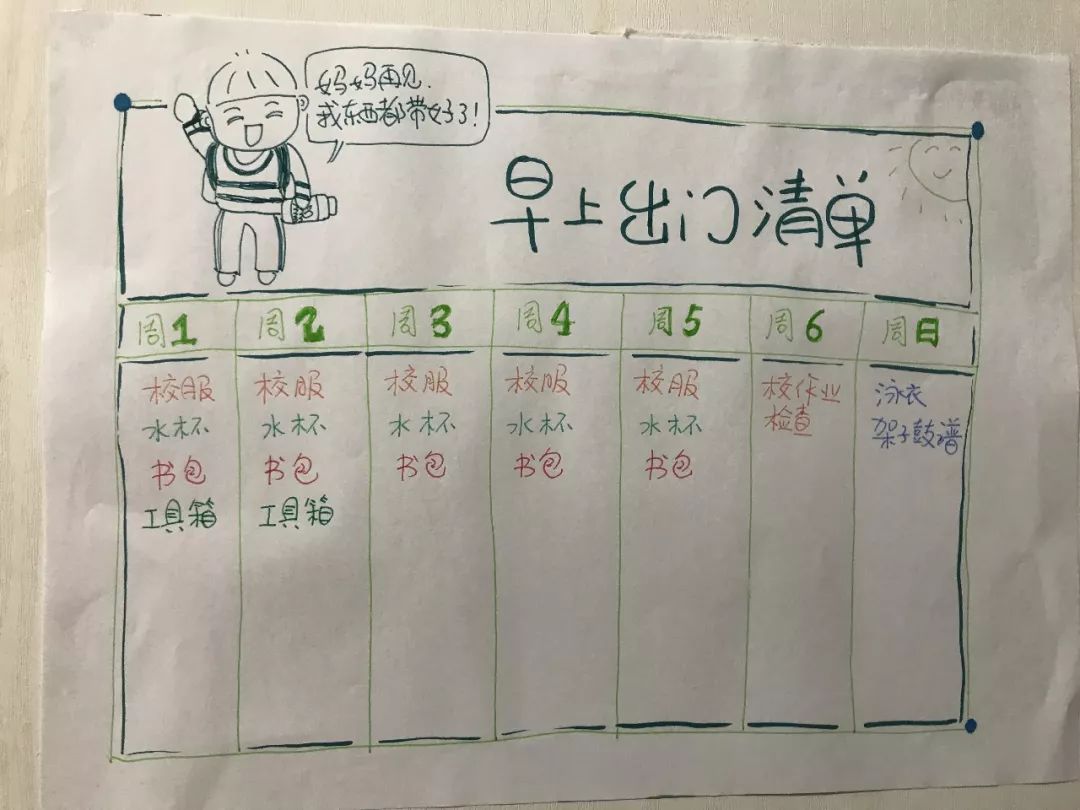 妈妈再见.
我东西都带好了!
早上出门清单
周1 周2 周3 周4 周5 周6 周日
校服 校服 校服 校服 校服 校作业 泳衣
水杯 水杯 水杯 水杯 水杯 检查 架子鼓谱
书包 书包 书包 书包 书包
工具箱 工具箱